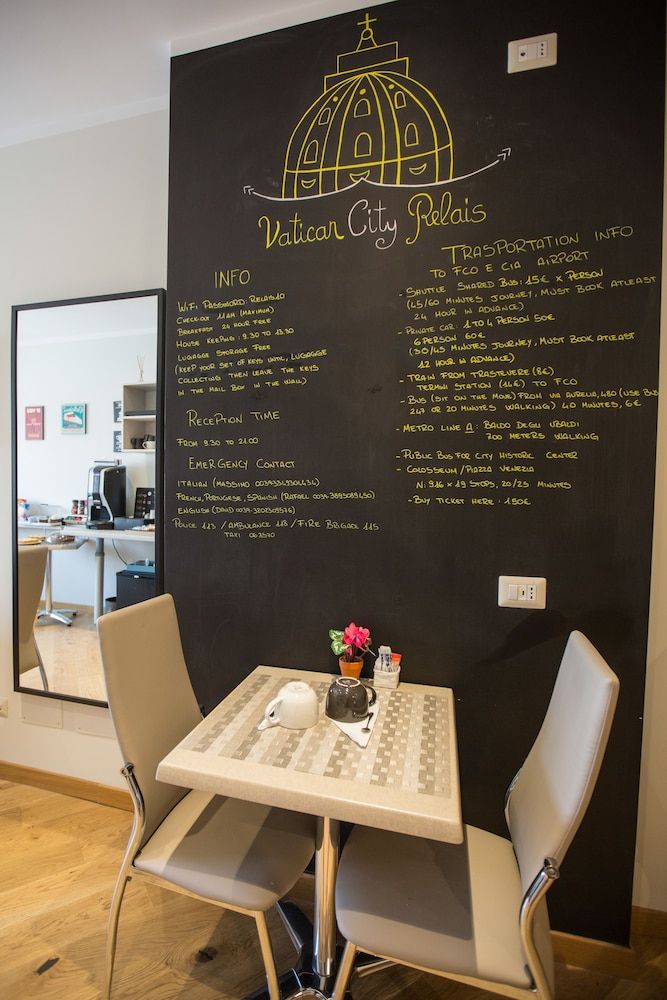 Vatican City Relais
INFO
WiFi Password: Relais10
Check-out 11AM (maximum)
Breakfast 24 hour free
House keeping: 9.30 to 13.30
Luggage storage free
(keep your set of keys until, luggage
collecting then leave the keys
in the mail box in the wall)
Reception Time
From 9.30 to 21.00
Emergency Contact
Italian (Massimo
French, Portugese, Spanish (Rafael
English (David
Police 113 / Ambulance 118 / Fire Brigade 115
Taxi 063570
Trasportation Info
to FCO e CIA Airport
- Shuttle shared bus: 15€ x person
(45/60 minutes journey, must book atleast
24 hour in advance)
- Private car: 1 to 4 person 50€
6 person 60€
(30/45 minutes journey, must book atleast
12 hour in advance)
- Train from Trastevere (8€)
Termini Station (14€) to FCO
- Bus (sit on the move) from Via Aurelia, 480 (use bus
247 or 20 minutes walking) 40 minutes, 6€
- Metro line A: Baldo degli Ubaldi
700 meters walking
- Public bus for city historic center
- Colosseum / Piazza Venezia
N: 916 x 19 stops, 20/25 minutes
- Buy ticket here: 1.50€